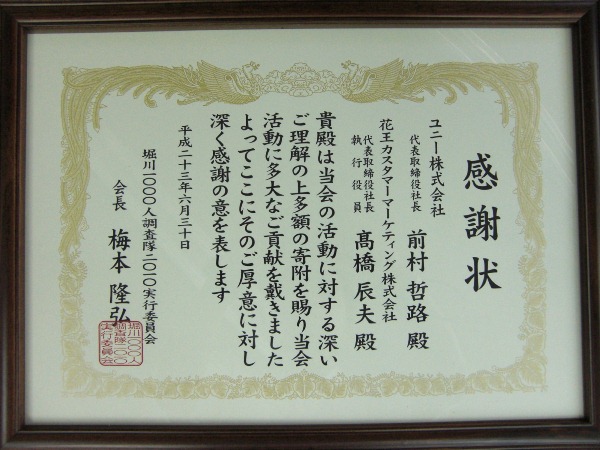 感謝状
ユニー株式会社
代表取締役社長
前村 哲路 殿
花王カスタマーマーケティング株式会社
代表取締役社長
執行役員
髙橋 辰夫 殿
貴殿は当会の活動に対する深い
ご理解の上多額の寄附を賜り当会
活動に多大なご貢献を戴きました
よってここにそのご厚意に対し
深く感謝の意を表します
平成二十三年六月三十日
堀川一〇〇〇人調査隊二〇一〇実行委員会
会長 梅本 隆弘
堀川一〇〇〇人
調査隊二〇一〇
実行委員会